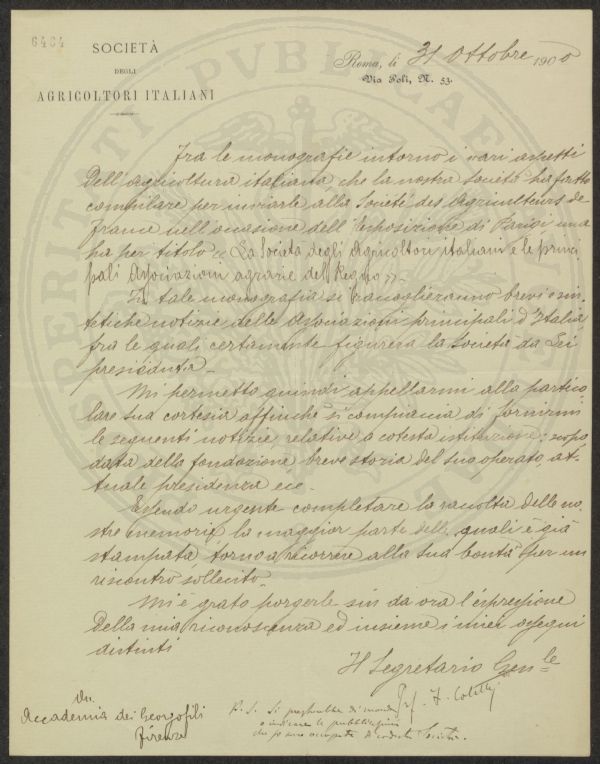 6464
SOCIETÀ
DEGLI
AGRICOLTORI ITALIANI
Roma, li 31 Ottobre 1900
Via Poli, N. 53.
Fra le monografie intorno i vari aspetti
dell'agricoltura italiana, che la nostra società ha fatto
compilare per inviarle alla Societé des Agriculteurs de
France nell'occasione dell'Esposizione di Parigi una
ha per titolo « La Società degli Agricoltori italiani e le princi
pali Associazioni agrarie del Regno ».
In tale monografia si raccoglieranno brevi e sin
tetiche notizie delle Associazioni principali d'Italia,
fra le quali certamente figurerà la Società da Lei
presieduta.
Mi permetto quindi appellarmi alla partico
lare sua cortesia affinchè si compiaccia di fornirmi
le seguenti notizie relative a cotesta istituzione: scopo,
data della fondazione, breve storia del suo operato, at-
tuale presidenza ecc.
Essendo urgente completare la raccolta delle no
stre memorie, la maggior parte delle quali è già
stampata, torno a ricorrere alla Sua bontà per un
riscontro sollecito.
Mi è grato porgerle sin da ora l'espressione
della mia riconoscenza ed insieme i miei ossequi
distinti
Il Segretario Gen.le
Prof. F.
On.
Accademia dei Georgofili
Firenze
P. S. Si pregherebbe di mandare
o indicare le pubblicazioni
che si sono occupate di codesta Società.
PVBLICAE